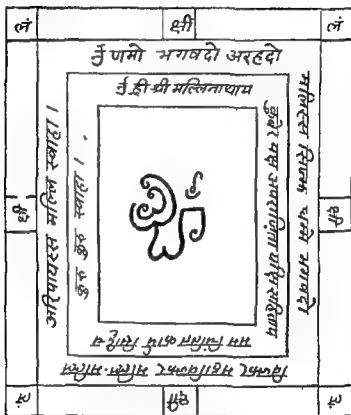 लं क्षी लं
ॐ णमो भगवदो अरहदो
मल्लिस्स सिज्झ धम्मे भगवदो
विज्झर महाविज्झर मल्लि-मल्लि
अरिपायस्स मल्लि स्वाहा ।
ॐ ह्री श्री मल्लिनाथाय
कुबेर यक्ष अपराजिता यक्षि सहिताय
मम चिंतित कार्य सिद्धिं
कुरु कुरु स्वाहा ।
क्षी
क्षी
लं क्षी लं